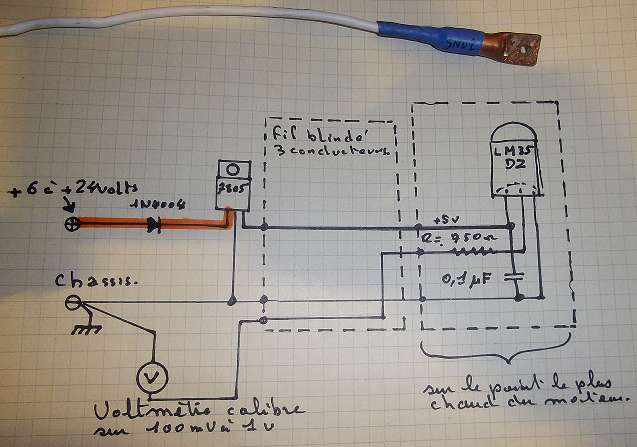 fil blindé
3 conducteurs.
LM35
DZ
7805
+6 à +24volts
1N4004
+5v
R= 750Ω
0,1 µF
Chassis.
V
sur le point le plus
chaud du moteur.
Voltmètre calibre
sur 100mV à 1v